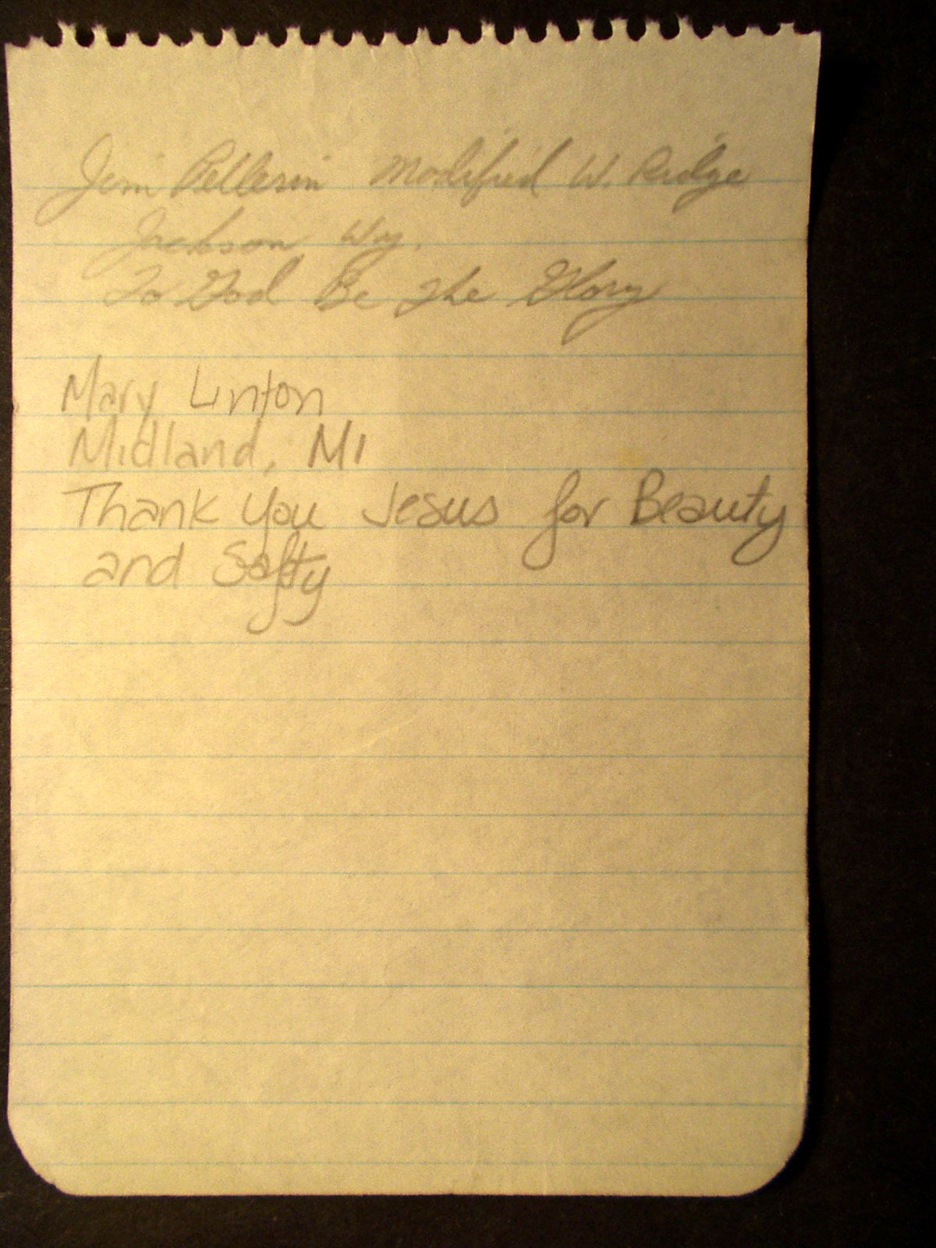 Jim Pellerin Modified W. Ridge
Jackson Wy.
To God Be The Glory
Mary Linton
Midland, MI
Thank you Jesus for Beauty
and Safty